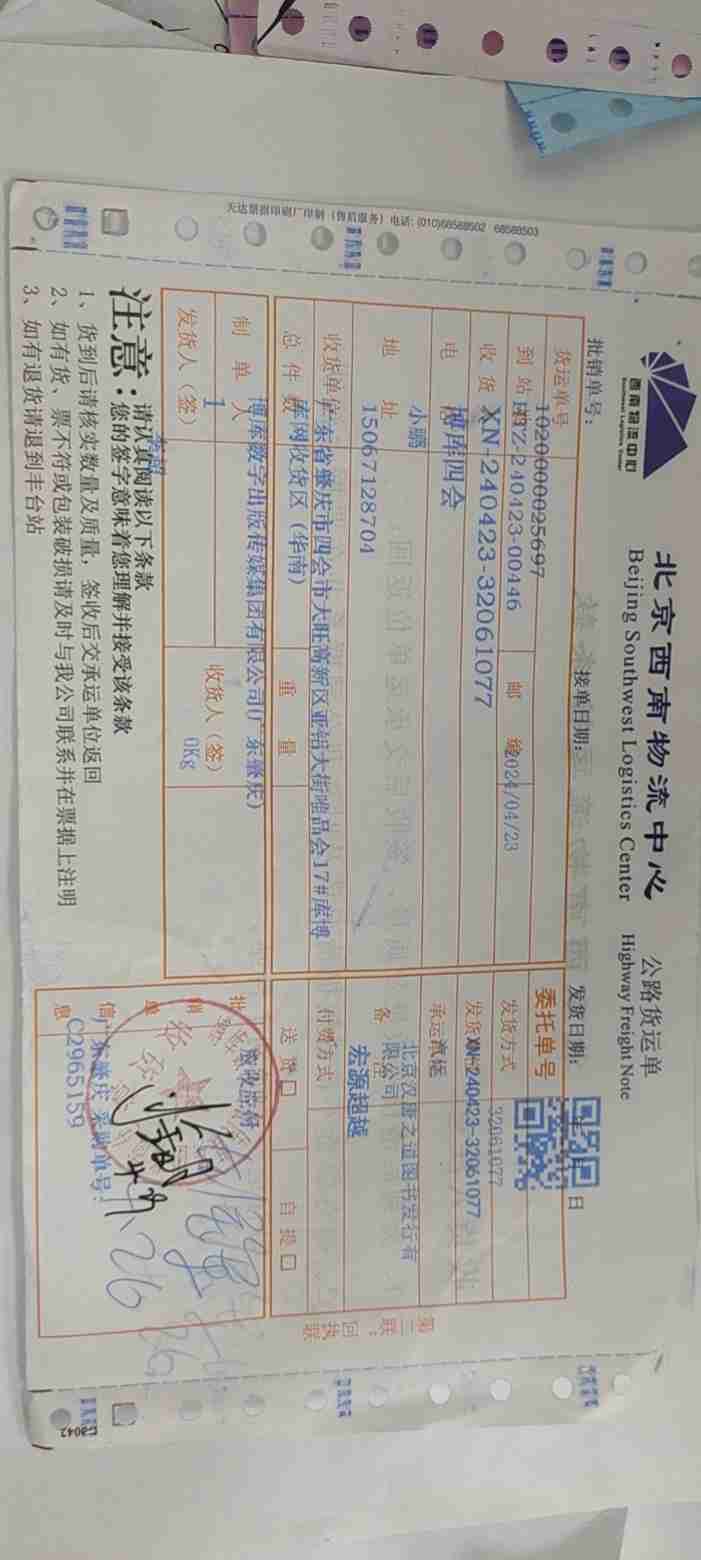 天达票据印刷厂印制（售后服务）电话：(010)68568502 68568503
西南物流中心
Southwest Logistics Center
北京西南物流中心
Beijing Southwest Logistics Center
公路货运单
Highway Freight Note
批销单号：
接单日期：
发货日期：
年 月 日
货运单号
1020000025697
委托单号
到站
-240423-00446
邮编
2024/04/23
发货方式
32061077
收货
XN-240423-32061077
发货
XN-240423-32061077
电
博库四会
承运
汽运
小鹏
北京汉唐之道图书发行有
限公司
地址
15067128704
备
宏源超越
收货单位
广东省肇庆市四会市大旺高新区亚铝大街唯品会17#库博
库网收货区（华南）
付费方式
总件数
重量
送货口
自提口
制单人
博库数字出版传媒集团有限公司(广东肇庆)
批销单信息
发货人（签）
1
收货人（签）
0Kg
广东肇庆 采购单号：
C2965159
第二联：回执联
注意：
请认真阅读以下条款
您的签字意味着您理解并接受该条款
1、货到后请核实数量及质量，签收后交承运单位返回
2、如有货、票不符或包装破损请及时与我公司联系并在票据上注明
3、如有退货请退到丰台站